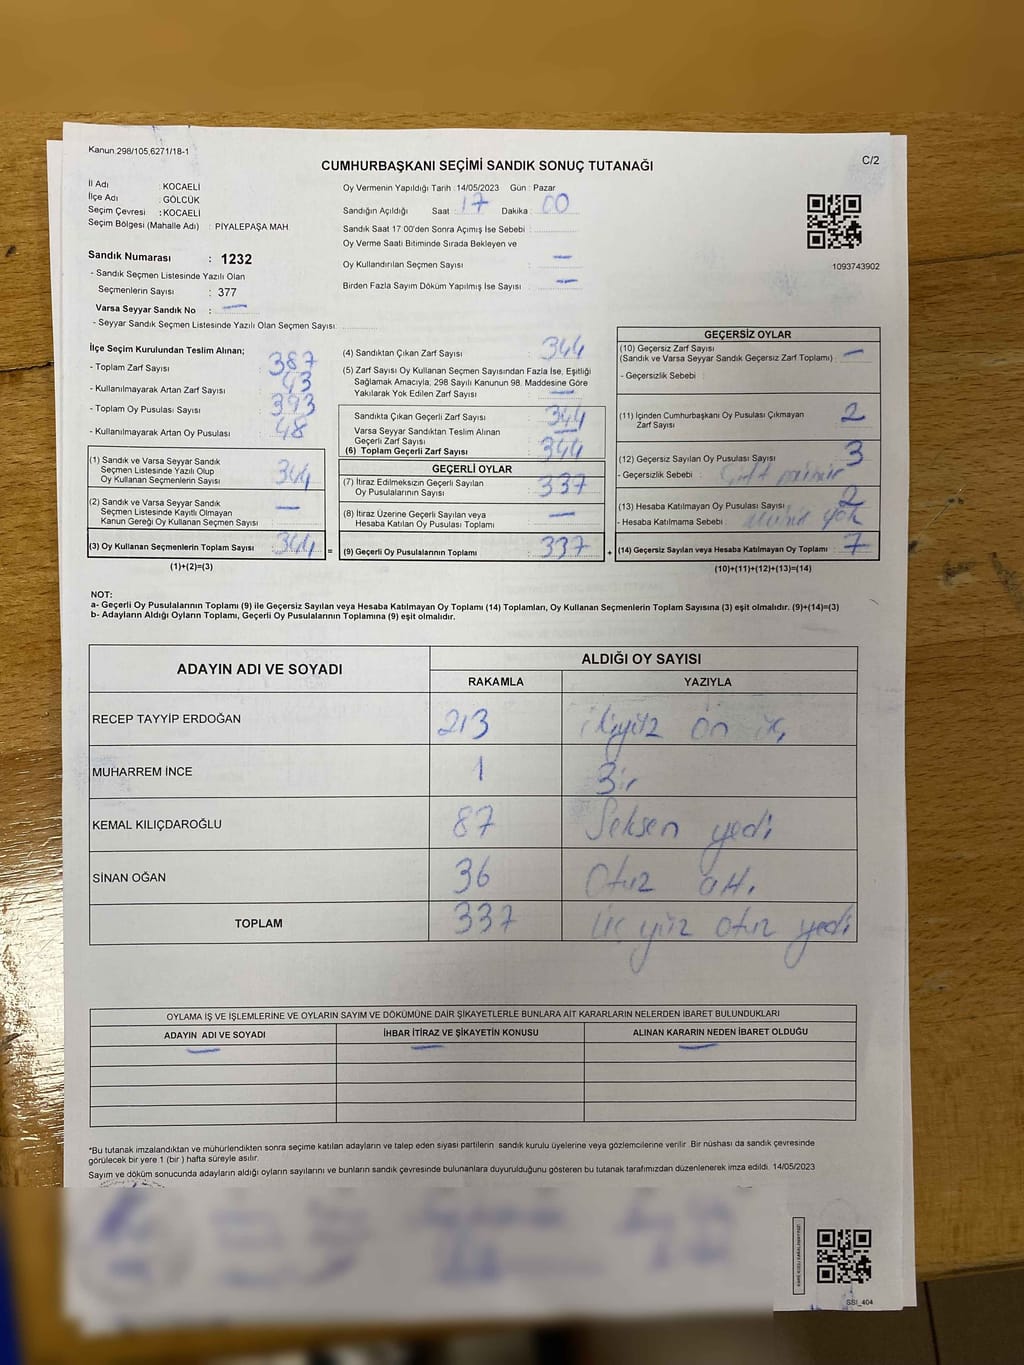 Kanun.298/105,6271/18-1
CUMHURBAŞKANI SEÇİMİ SANDIK SONUÇ TUTANAĞI
C/2
İl Adı : KOCAELİ
İlçe Adı : GÖLCÜK
Seçim Çevresi : KOCAELİ
Seçim Bölgesi (Mahalle Adı) : PİYALEPAŞA MAH.
Oy Vermenin Yapıldığı Tarih : 14/05/2023 Gün : Pazar
Sandığın Açıldığı Saat : 17 Dakika : 00
Sandık Saat 17 00'den Sonra Açımış İse Sebebi :
Oy Verme Saati Bitiminde Sırada Bekleyen ve
Oy Kullandırılan Seçmen Sayısı : —
Birden Fazla Sayım Döküm Yapılmış İse Sayısı : —
1093743902
Sandık Numarası : 1232
- Sandık Seçmen Listesinde Yazılı Olan
Seçmenlerin Sayısı : 377
Varsa Seyyar Sandık No : —
- Seyyar Sandık Seçmen Listesinde Yazılı Olan Seçmen Sayısı:
İlçe Seçim Kurulundan Teslim Alınan;
- Toplam Zarf Sayısı : 387
- Kullanılmayarak Artan Zarf Sayısı : 43
- Toplam Oy Pusulası Sayısı : 393
- Kullanılmayarak Artan Oy Pusulası : 48
(1) Sandık ve Varsa Seyyar Sandık
Seçmen Listesinde Yazılı Olup
Oy Kullanan Seçmenlerin Sayısı : 344
(2) Sandık ve Varsa Seyyar Sandık
Seçmen Listesinde Kayıtlı Olmayan
Kanun Gereği Oy Kullanan Seçmen Sayısı : —
(3) Oy Kullanan Seçmenlerin Toplam Sayısı : 344
(1)+(2)=(3)
(4) Sandıktan Çıkan Zarf Sayısı : 344
(5) Zarf Sayısı Oy Kullanan Seçmen Sayısından Fazla İse, Eşitliği
Sağlamak Amacıyla; 298 Sayılı Kanunun 98. Maddesine Göre
Yakılarak Yok Edilen Zarf Sayısı : —
Sandıkta Çıkan Geçerli Zarf Sayısı : 344
Varsa Seyyar Sandıktan Teslim Alınan
Geçerli Zarf Sayısı : —
(6) Toplam Geçerli Zarf Sayısı : 344
GEÇERLİ OYLAR
(7) İtiraz Edilmeksizin Geçerli Sayılan
Oy Pusulalarının Sayısı : 337
(8) İtiraz Üzerine Geçerli Sayılan veya
Hesaba Katılan Oy Pusulası Toplamı : —
= (9) Geçerli Oy Pusulalarının Toplamı : 337
GEÇERSİZ OYLAR
(10) Geçersiz Zarf Sayısı
(Sandık ve Varsa Seyyar Sandık Geçersiz Zarf Toplamı) : —
- Geçersizlik Sebebi :
(11) İçinden Cumhurbaşkanı Oy Pusulası Çıkmayan
Zarf Sayısı : 2
(12) Geçersiz Sayılan Oy Pusulası Sayısı : 3
- Geçersizlik Sebebi : Çift
(13) Hesaba Katılmayan Oy Pusulası Sayısı : 2
- Hesaba Katılmama Sebebi : Mühür yok
+ (14) Geçersiz Sayılan veya Hesaba Katılmayan Oy Toplamı : 7
(10)+(11)+(12)+(13)=(14)
NOT:
a- Geçerli Oy Pusulalarının Toplamı (9) ile Geçersiz Sayılan veya Hesaba Katılmayan Oy Toplamı (14) Toplamları, Oy Kullanan Seçmenlerin Toplam Sayısına (3) eşit olmalıdır. (9)+(14)=(3)
b- Adayların Aldığı Oyların Toplamı, Geçerli Oy Pusulalarının Toplamına (9) eşit olmalıdır.
ADAYIN ADI VE SOYADI
ALDIĞI OY SAYISI
RAKAMLA YAZIYLA
RECEP TAYYİP ERDOĞAN 213 ikiyüz on üç
MUHARREM İNCE 1 Bir
KEMAL KILIÇDAROĞLU 87 Seksen yedi
SİNAN OĞAN 36 Otuz altı
TOPLAM 337 üç yüz otuz yedi
OYLAMA İŞ VE İŞLEMLERİNE VE OYLARIN SAYIM VE DÖKÜMÜNE DAİR ŞİKAYETLERLE BUNLARA AİT KARARLARIN NELERDEN İBARET BULUNDUKLARI
ADAYIN ADI VE SOYADI İHBAR İTİRAZ VE ŞİKAYETİN KONUSU ALINAN KARARIN NEDEN İBARET OLDUĞU
— — —
*Bu tutanak imzalandıktan ve mühürlendikten sonra seçime katılan adayların ve talep eden siyasi partilerin sandık kurulu üyelerine veya gözlemcilerine verilir. Bir nüshası da sandık çevresinde
görülecek bir yere 1 (bir) hafta süreyle asılır.
Sayım ve döküm sonucunda adayların aldığı oyların sayılarını ve bunların sandık çevresinde bulunanlara duyurulduğunu gösteren bu tutanak tarafımızdan düzenlenerek imza edildi. 14/05/2023
SSI_404